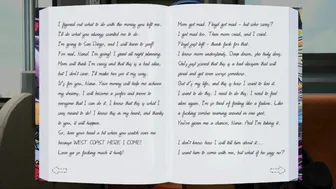 I figured out what to do with the money you left me.
I'll do what you always wanted me to do.
I'm going to San Diego, and I will learn to surf!
For real, Nana! I'm going! I spent all night planning.
Mom will think I'm crazy and that this is a bad idea,
but I don't care. I'll make her see it my way.
It's for you, Nana. Your money will help me achieve
my dreams. I will become a surfer and prove to
everyone that I can do it. I know that this is what I
was meant to do! I know this in my heart, and thanks
to you, it will happen.
So, turn your head a bit when you watch over me
because WEST COAST HERE I COME!
Love you so fucking much it hurts!
Mom got mad. Floyd got mad - but who cares?
I got mad too. There were cards, and I cried.
Floyd just left - thank fuck for that.
I know mom understands. Deep down, she truly does.
She's just scared that this is a bad decision that will
prevail and get even worse somehow.
But it's my life, and this is how I want to live it.
I want to do this, I need to do this. I need to feel
alive again. I'm so tired of feeling like a failure. Like
a fucking zombie running around in one spot.
You've given me a chance, Nana. And I'm taking it.
I don't know how I will tell him about it...
I want him to come with me, but what if he says no?